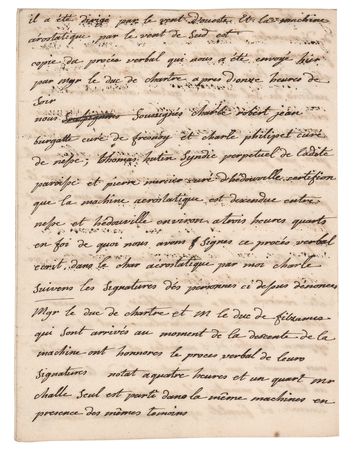 il a été dirigé par le vent d'ouest. Et la machine
aérostatique par le vent de Sud est
copie du procès verbal que nous a été envoyé hier
par mgr le duc de chartre a près d'onze heures de
Soir
nous Soussignés charle robert jean
curé de fresnoy et charle philipet curé
de nesle; Thomas hutin Syndic perpetuel de ladite
paroisse et pierre mercier curé d'hedouville certifion
que la machine aérostatique est descendue entre
nesle et hédouville environ a trois heures quarts
en foi de quoi nous avons Signés ce procès verbal
écrit, dans le char aérostatique par moi charle
Suivens les Signatures dés personnes ci desous dénoncés
Mgr le duc de chartre et M le duc de fitzames
qui sont arrivés au moment de la descente de la
machine ont honneres le procès verbal de leurs
Signatures nota a quatre heures et un quart Mr
challe Seul est parti dans la même machines en
presence des mêmes temoins